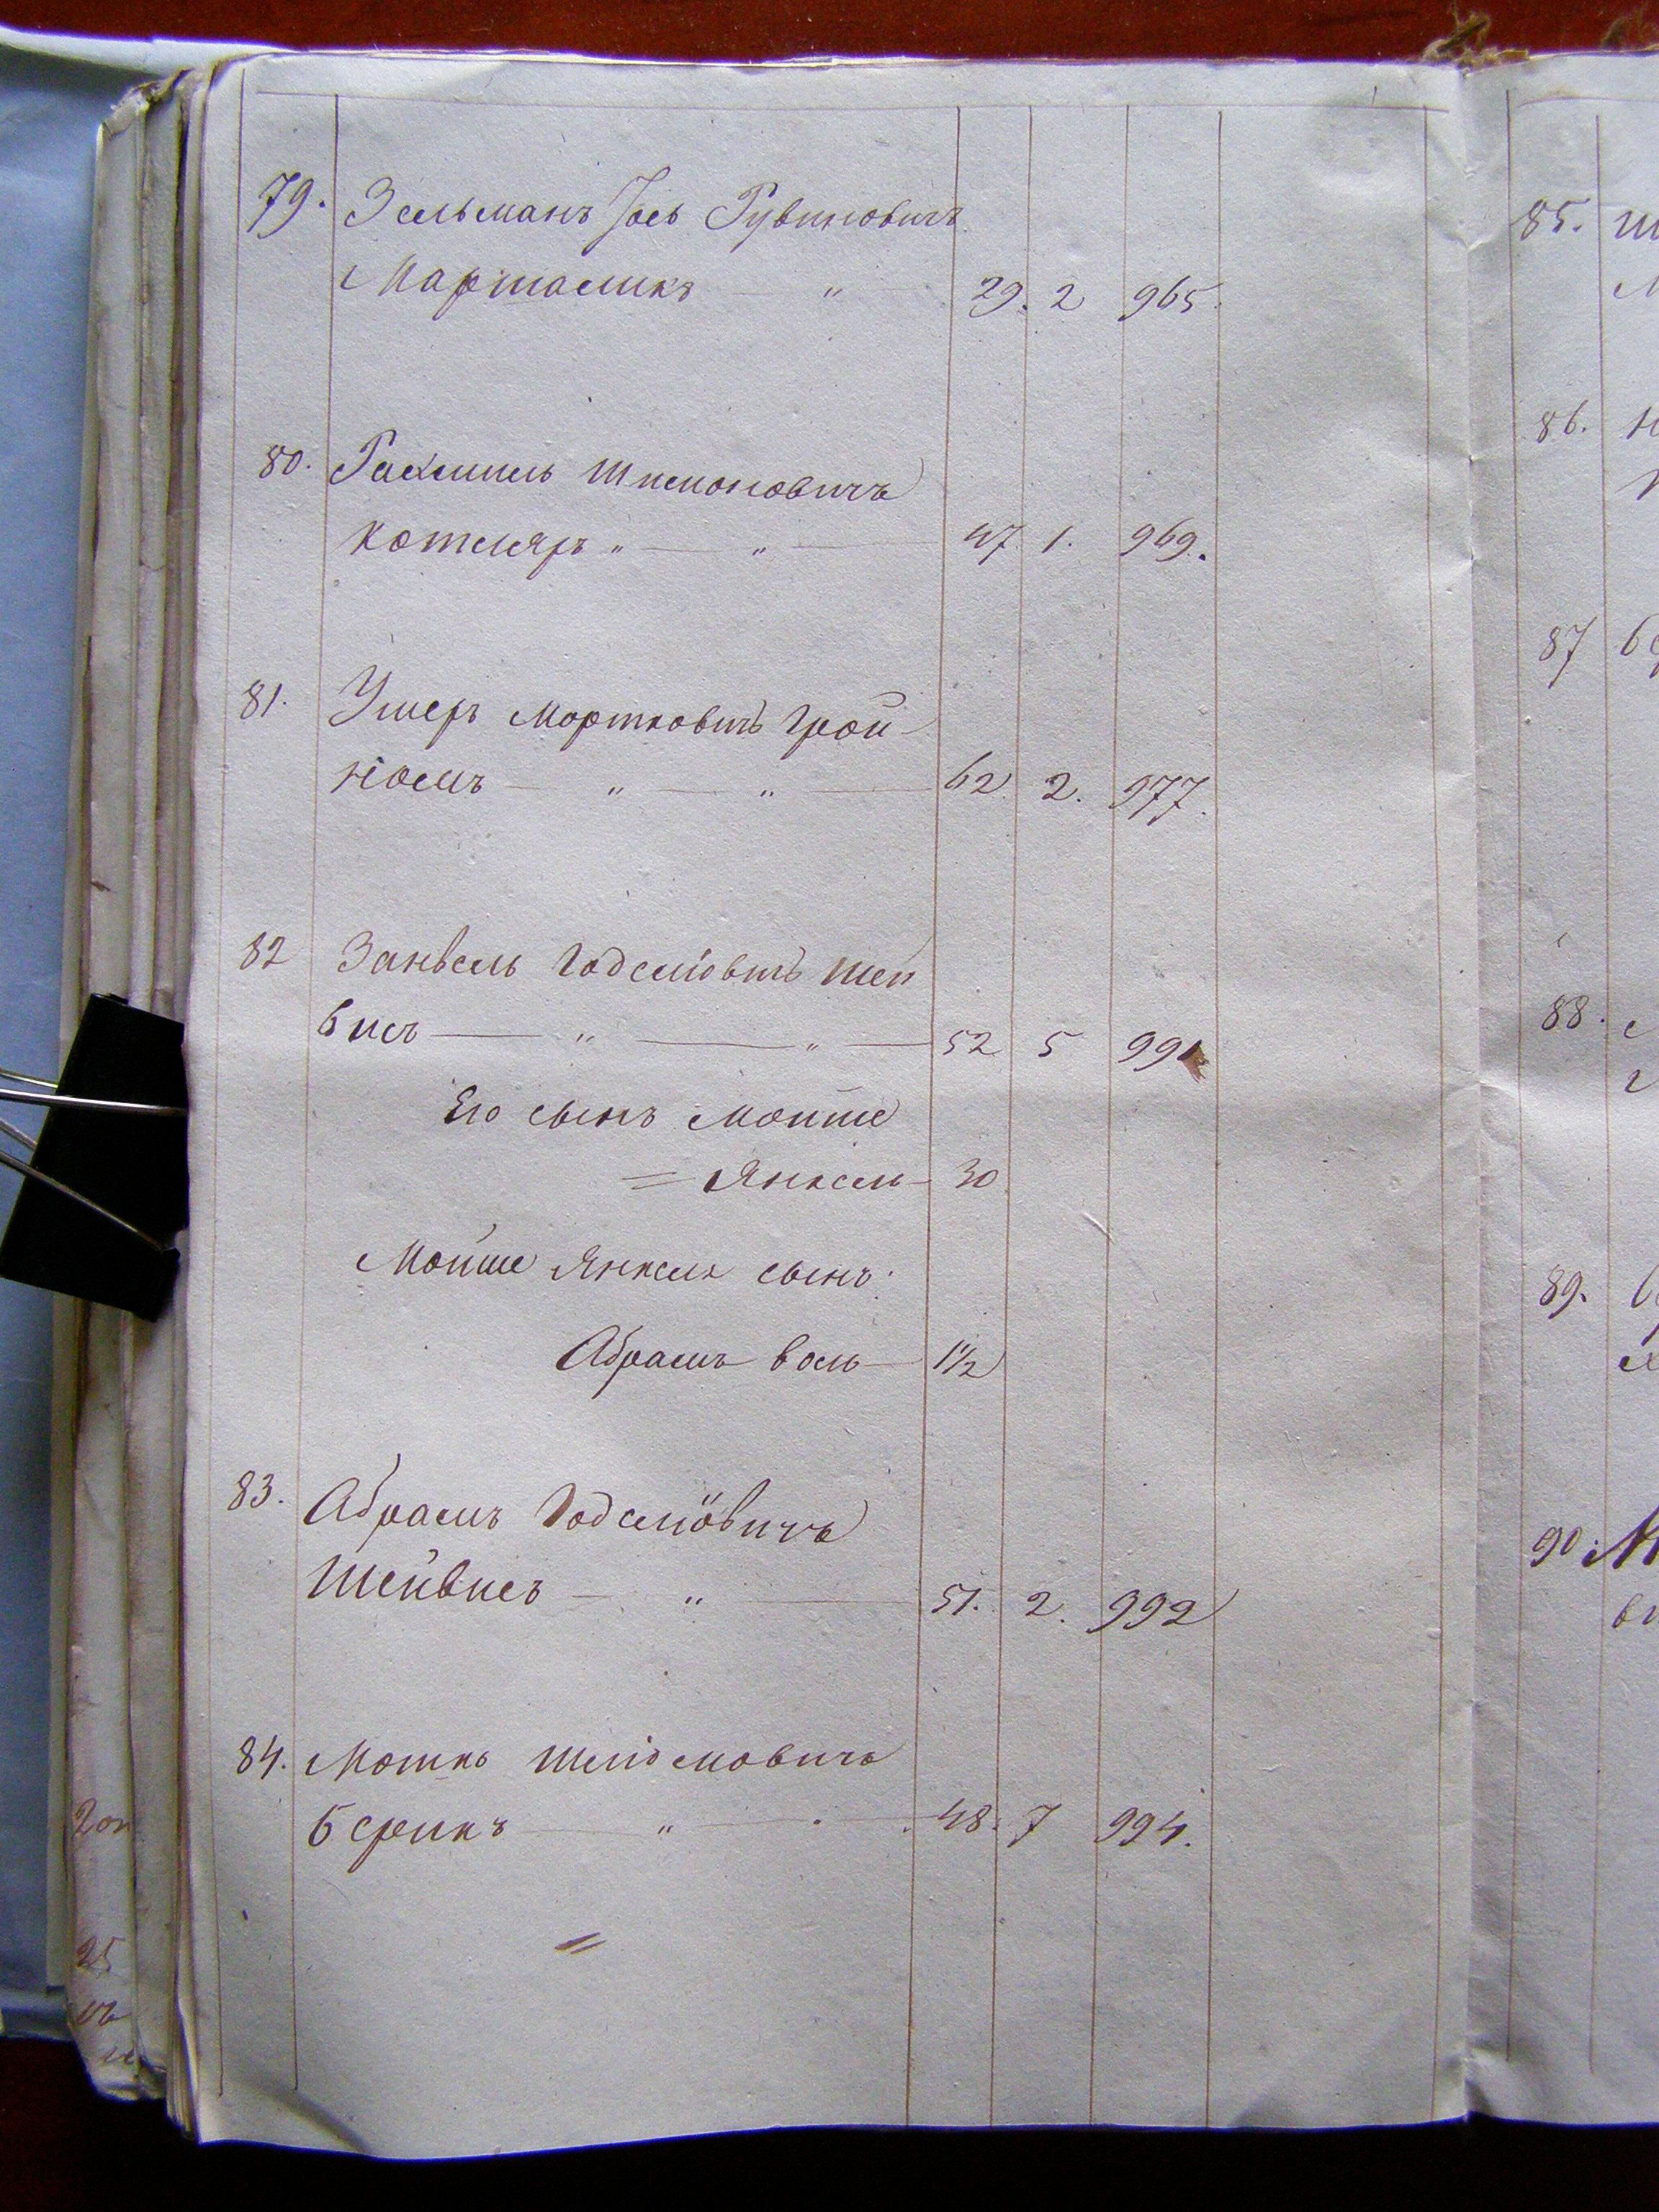 79. Зельманъ Іось Рувиновичъ
Маршаликъ — " — 29. 2 965.
80. Рахмиль Шимоновичъ
Котляръ " — " — 47 1. 969.
81. Ушеръ Мортковичъ Грой-
німъ — " — " — 62 2. 977.
82 Занвель Годеліовичъ Шей
висъ — " — " — 52 5 991
Его сынъ Мойше
= Янкель — 30
Мойше Янкеля сынъ:
Абрамъ Воль — 1½
83. Абрамъ Годеліовичъ
Шейвисъ — " — 51. 2. 992
84. Мотко Шліомовичъ
Берикъ — " — 48. 7 994.
=
85.
86.
87
88.
89.
90.